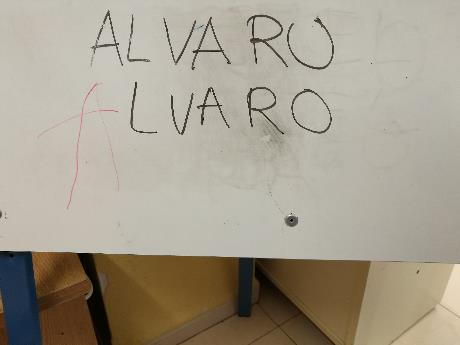 ALVARO
ALVARO